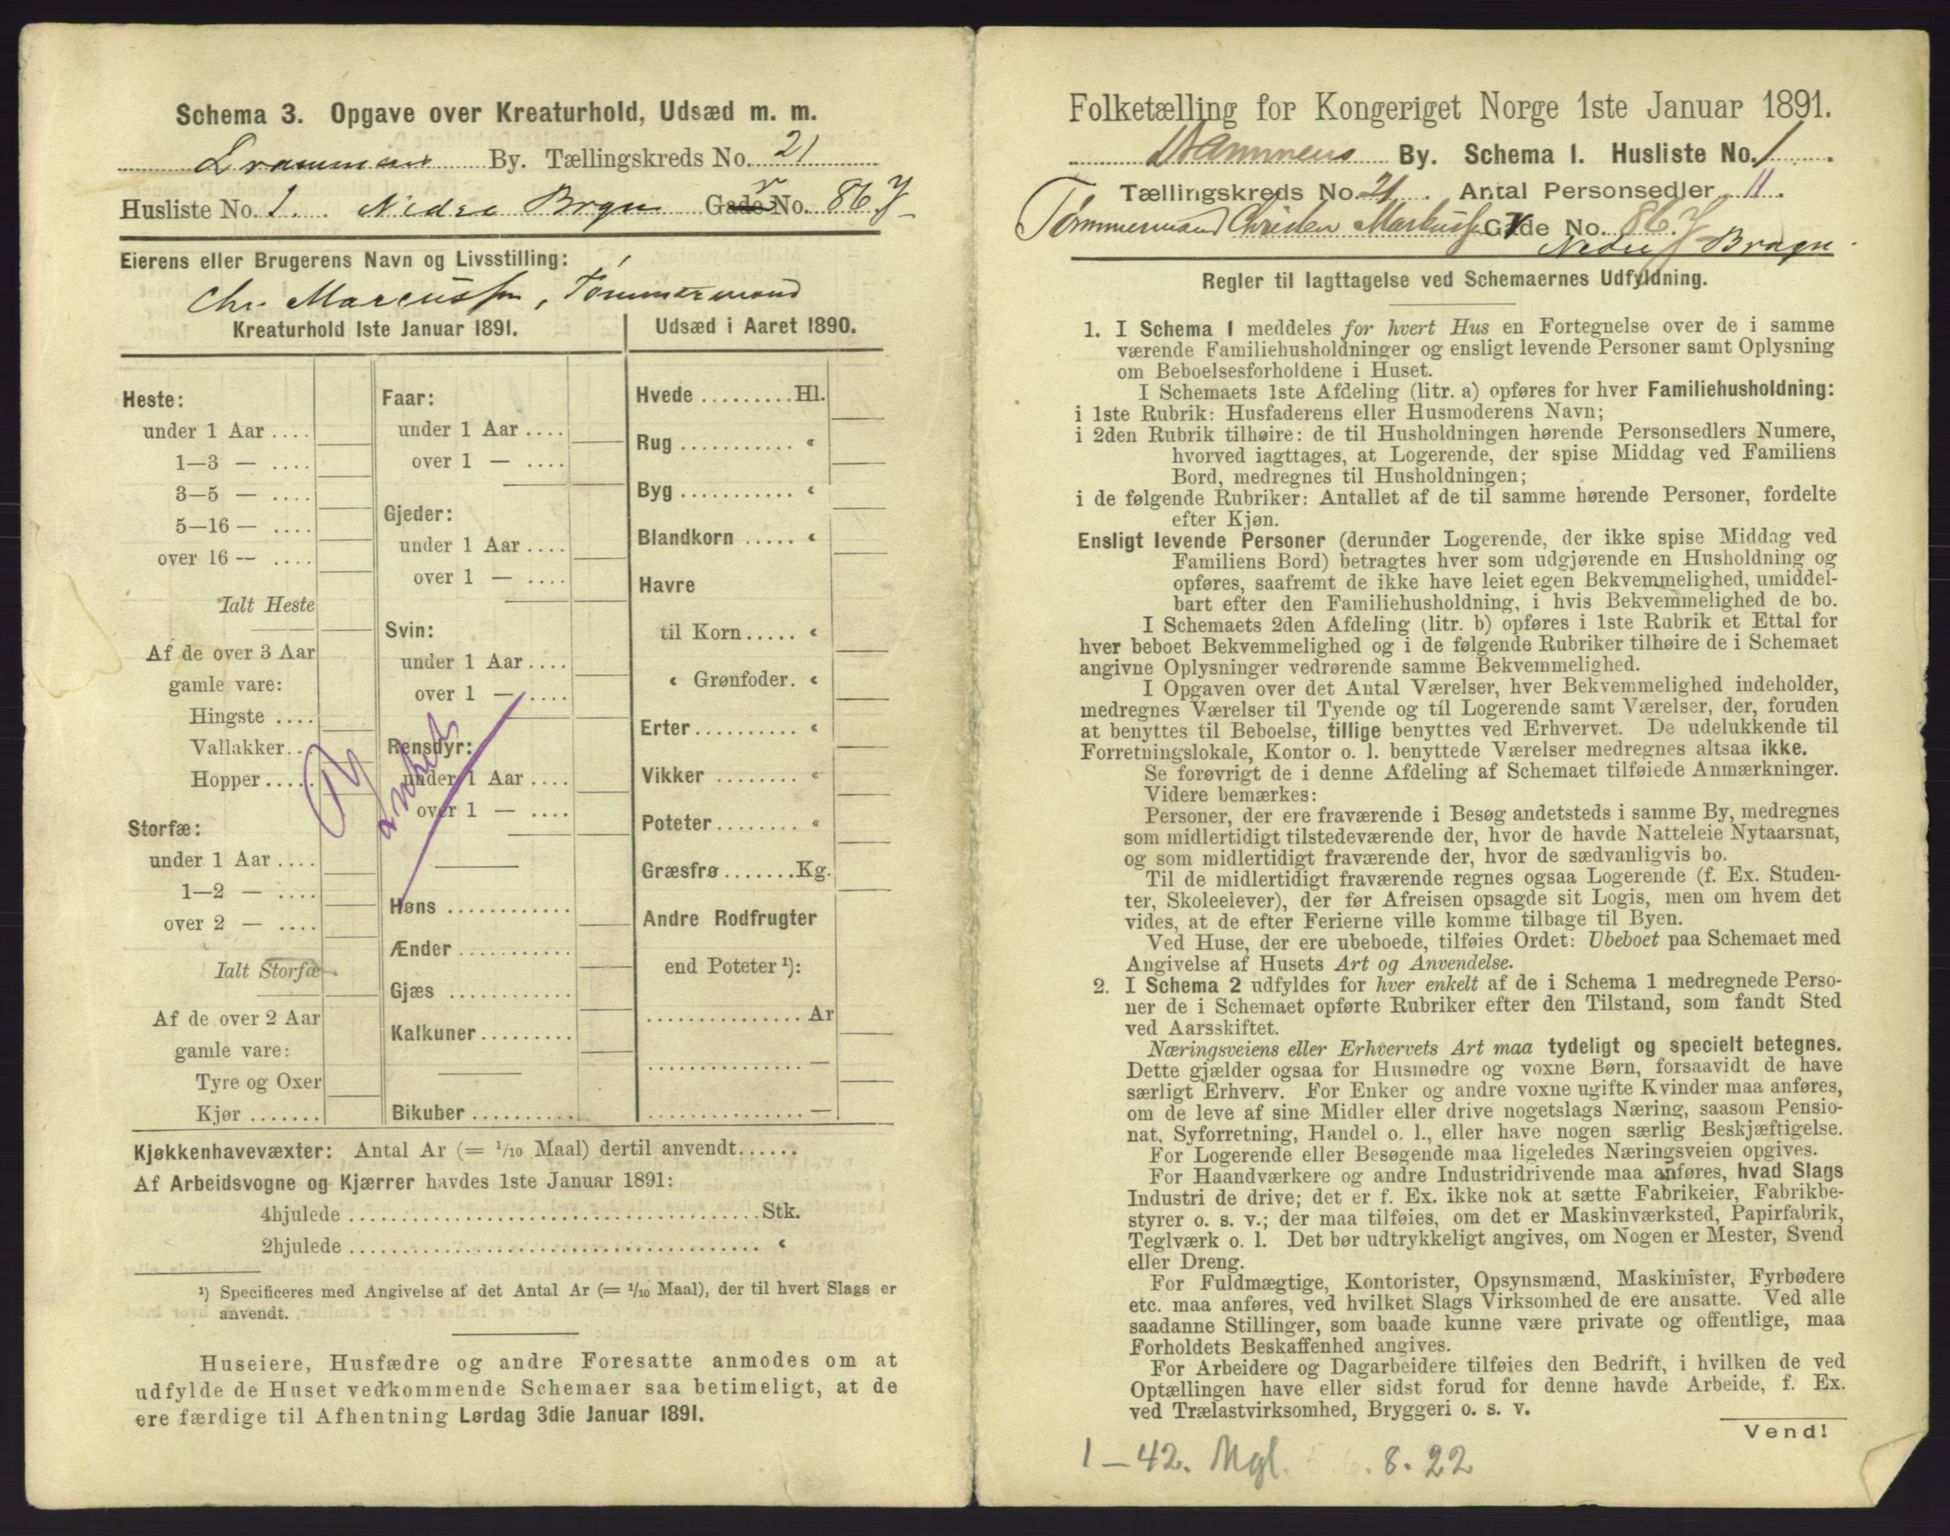 Schema 3. Opgave over Kreaturhold, Udsæd m. m.
Drammens By. Tællingskreds No. 21
Husliste No. 1. Nedre Bragn Gade No. 86 f
Eierens eller Brugerens Navn og Livsstilling:
Chr. Marcussen, Tømmermand
Kreaturhold 1ste Januar 1891.
Heste:
under 1 Aar ....
1—3 — ....
3—5 — ....
5—16 — ....
over 16 — ....
Ialt Heste
Af de over 3 Aar
gamle vare:
Hingste ....
Vallakker ..
Hopper .....
Storfæ:
under 1 Aar ....
1—2 — ....
over 2 — ....
Ialt Storfæ
Af de over 2 Aar
gamle vare:
Tyre og Oxer
Kjør .......
Faar:
under 1 Aar ....
over 1 — ....
Gjeder:
under 1 Aar ....
over 1 — ....
Svin:
under 1 Aar ....
over 1 — ....
Rensdyr:
under 1 Aar ....
over 1 — ....
Høns ............
Ænder ............
Gjæs ............
Kalkuner ..........
Bikuber ..........
Udsæd i Aaret 1890.
Hvede ......... Hl.
Rug ........... «
Byg ........... «
Blandkorn ..... «
Havre
til Korn ..... «
« Grønfoder. «
Erter .......... «
Vikker ......... «
Poteter ........ «
Græsfrø ....... Kg.
Andre Rodfrugter
end Poteter ¹):
............... Ar
............... —
............... —
Kjøkkenhavevæxter: Antal Ar (= 1/10 Maal) dertil anvendt ......
Af Arbeidsvogne og Kjærrer havdes 1ste Januar 1891:
4hjulede ........................................ Stk.
2hjulede ........................................ «
¹) Specificeres med Angivelse af det Antal Ar (= 1/10 Maal), der til hvert Slags er
anvendt.
Huseiere, Husfædre og andre Foresatte anmodes om at
udfylde de Huset vedkommende Schemaer saa betimeligt, at de
ere færdige til Afhentning Lørdag 3die Januar 1891.
Folketælling for Kongeriget Norge 1ste Januar 1891.
Drammens By. Schema 1. Husliste No. 1.
Tællingskreds No. 21. Antal Personsedler 11
Tømmermand Christen Markussen Gade No. 86 f
Nedre Bragn.
Regler til Iagttagelse ved Schemaernes Udfyldning.
1. I Schema 1 meddeles for hvert Hus en Fortegnelse over de i samme
værende Familiehusholdninger og ensligt levende Personer samt Oplysning
om Beboelsesforholdene i Huset.
I Schemaets 1ste Afdeling (litr. a) opføres for hver Familiehusholdning:
i 1ste Rubrik: Husfaderens eller Husmoderens Navn;
i 2den Rubrik tilhøire: de til Husholdningen hørende Personsedlers Numere,
hvorved iagttages, at Logerende, der spise Middag ved Familiens
Bord, medregnes til Husholdningen;
i de følgende Rubriker: Antallet af de til samme hørende Personer, fordelte
efter Kjøn.
Ensligt levende Personer (derunder Logerende, der ikke spise Middag ved
Familiens Bord) betragtes hver som udgjørende en Husholdning og
opføres, saafremt de ikke have leiet egen Bekvemmelighed, umiddel-
bart efter den Familiehusholdning, i hvis Bekvemmelighed de bo.
I Schemaets 2den Afdeling (litr. b) opføres i 1ste Rubrik et Ettal for
hver beboet Bekvemmelighed og i de følgende Rubriker tilhøire de i Schemaet
angivne Oplysninger vedrørende samme Bekvemmelighed.
I Opgaven over det Antal Værelser, hver Bekvemmelighed indeholder,
medregnes Værelser til Tyende og til Logerende samt Værelser, der, foruden
at benyttes til Beboelse, tillige benyttes ved Erhvervet. De udelukkende til
Forretningslokale, Kontor o. l. benyttede Værelser medregnes altsaa ikke.
Se forøvrigt de i denne Afdeling af Schemaet tilføiede Anmærkninger.
Videre bemærkes:
Personer, der ere fraværende i Besøg andetsteds i samme By, medregnes
som midlertidigt tilstedeværende der, hvor de havde Natteleie Nytaarsnat,
og som midlertidigt fraværende der, hvor de sædvanligvis bo.
Til de midlertidigt fraværende regnes ogsaa Logerende (f. Ex. Studen-
ter, Skoleelever), der før Afreisen opsagde sit Logis, men om hvem det
vides, at de efter Ferierne ville komme tilbage til Byen.
Ved Huse, der ere ubeboede, tilføies Ordet: Ubeboet paa Schemaet med
Angivelse af Husets Art og Anvendelse.
2. I Schema 2 udfyldes for hver enkelt af de i Schema 1 medregnede Perso-
ner de i Schemaet opførte Rubriker efter den Tilstand, som fandt Sted
ved Aarsskiftet.
Næringsveiens eller Erhvervets Art maa tydeligt og specielt betegnes.
Dette gjælder ogsaa for Husmødre og voxne Børn, forsaavidt de have
særligt Erhverv. For Enker og andre voxne ugifte Kvinder maa anføres,
om de leve af sine Midler eller drive nogetslags Næring, saasom Pensio-
nat, Syforretning, Handel o. l., eller have nogen særlig Beskjæftigelse.
For Logerende eller Besøgende maa ligeledes Næringsveien opgives.
For Haandværkere og andre Industridrivende maa anføres, hvad Slags
Industri de drive; det er f. Ex. ikke nok at sætte Fabrikeier, Fabrikbe-
styrer o. s. v.; der maa tilføies, om det er Maskinværksted, Papirfabrik,
Teglværk o. l. Det bør udtrykkeligt angives, om Nogen er Mester, Svend
eller Dreng.
For Fuldmægtige, Kontorister, Opsynsmænd, Maskinister, Fyrbødere
etc. maa anføres, ved hvilket Slags Virksomhed de ere ansatte. Ved alle
saadanne Stillinger, som baade kunne være private og offentlige, maa
Forholdets Beskaffenhed angives.
For Arbeidere og Dagarbeidere tilføies den Bedrift, i hvilken de ved
Optællingen have eller sidst forud for denne havde Arbeide, f. Ex.
ved Trælastvirksomhed, Bryggeri o. s. v.
Vend!
1—42. Mgl. 8. 22